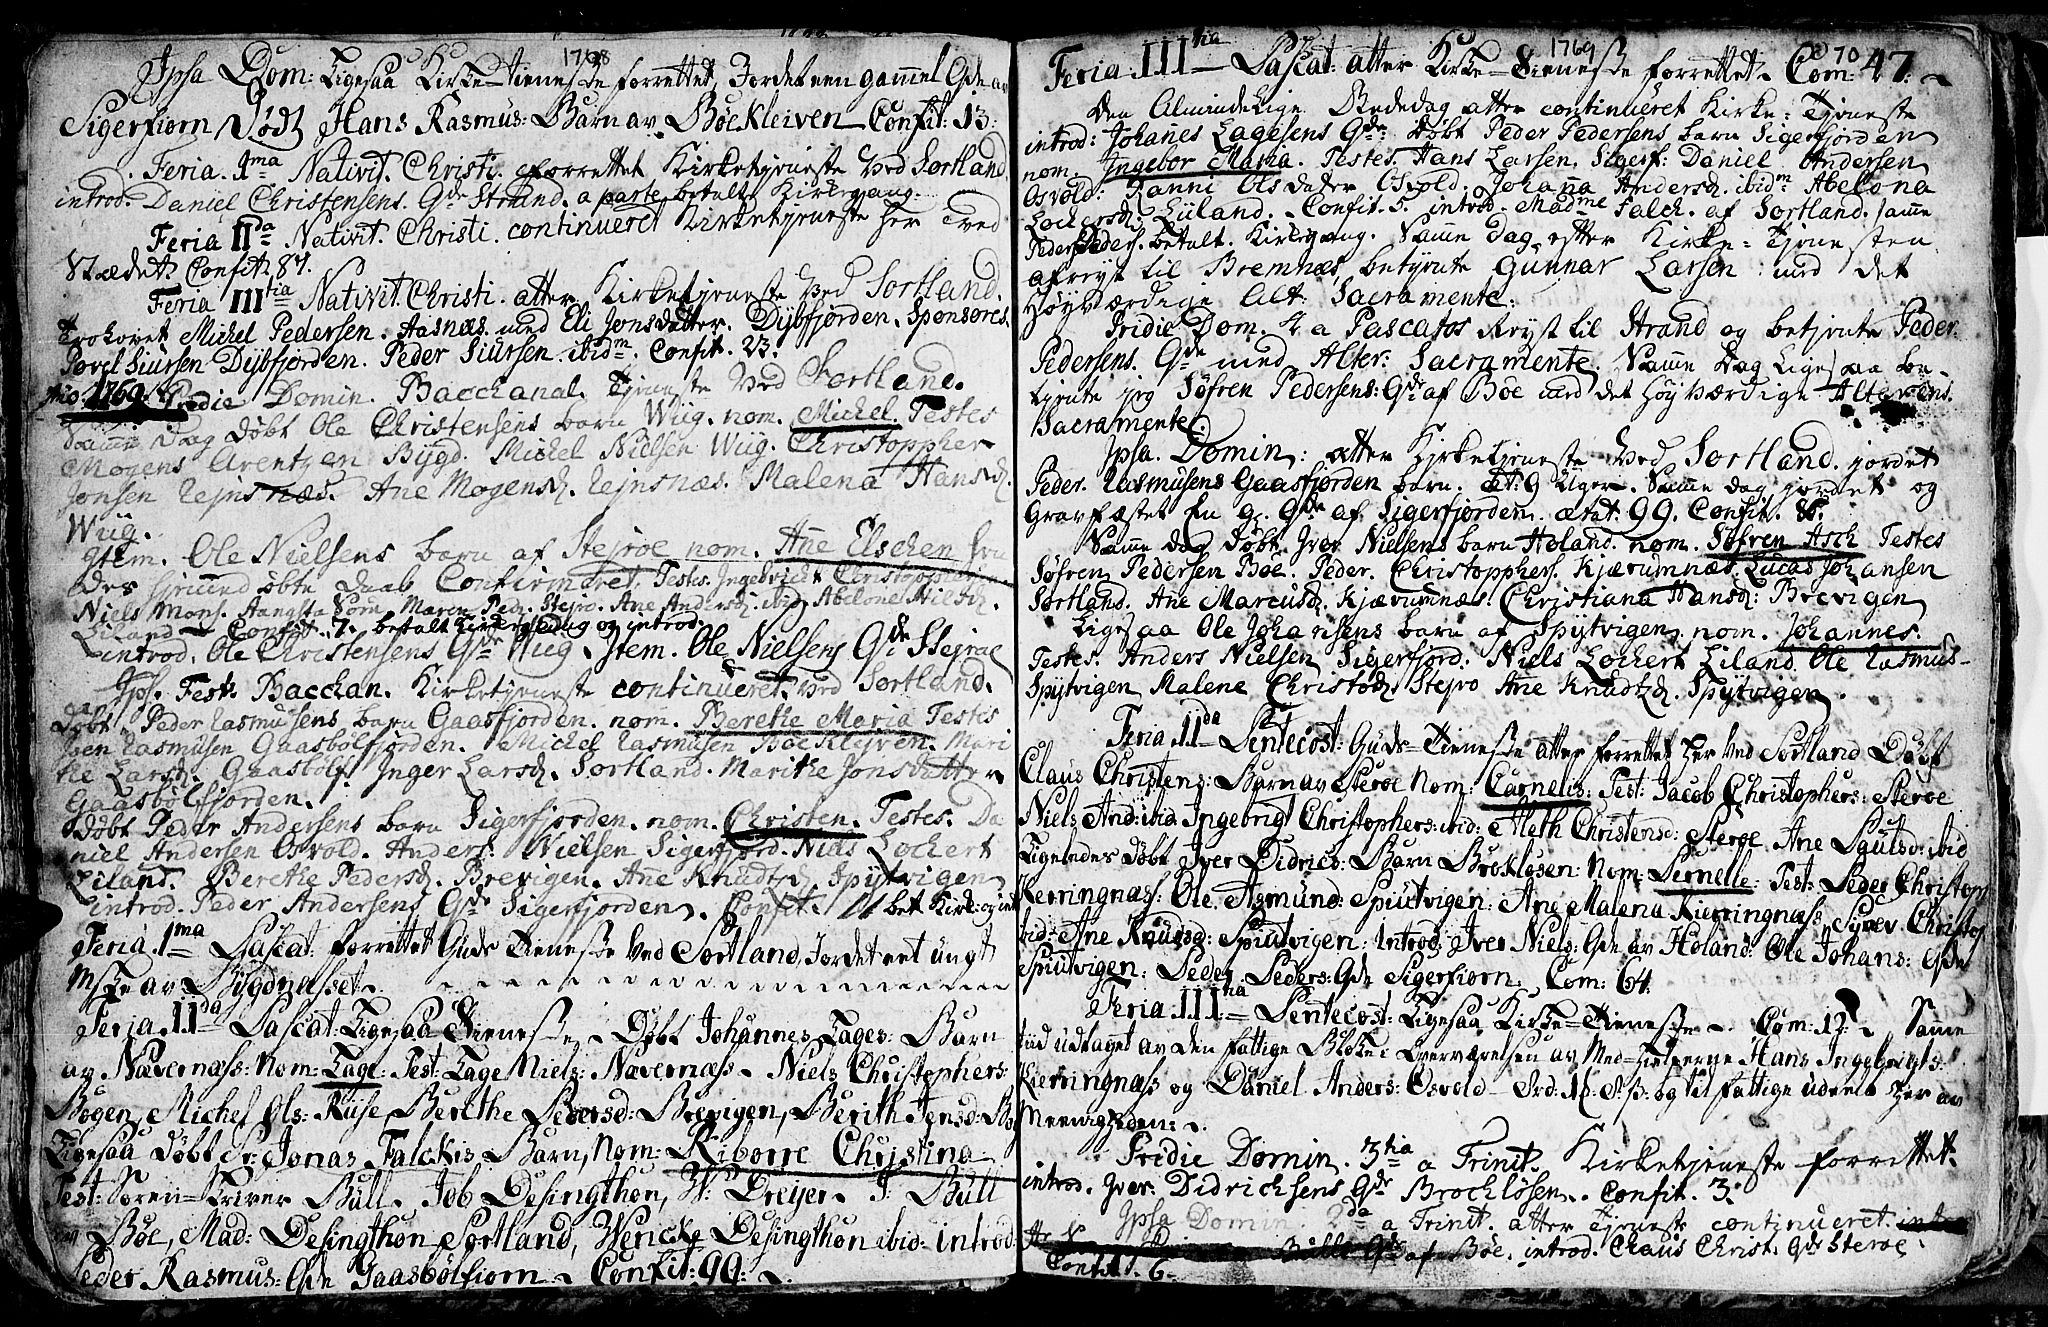 1768
Ipsa Dom: Ligesaa Kirke-Tieneste forrettet, Jordet een gammel Qde av
Sigerfiorn, Dødt Hans Rasmus: Barn av Bøckleiven Confit: 13:
Feria. 1ma Nativit. Christi. forrettet Kirketjeneste ved Sortland.
introd. Daniel Christensens. Qde Strand. a parte betalt Kirkegang.
Feria IIda Nativit. Christi. continueret Kirketjeneste her ved
Stædet. Confit. 87.
Feria IIItia Nativit. Christi. atter Kirketjeneste ved Sortland.
Trolovet Michel Pedersen. Aasnæs. med Eli Jonsdatter. Dÿbfjorden. Sponsores.
Povel Siursen Dÿbfjorden. Peder Siursen. ibidm. Confit. 23.
Ano: 1769. Pridie Domin. Bacchanal. Tjeneste ved Sortland.
Samme Dag døbt Ole Christensens barn Wiig. nom. Michel. Testes
Mogens Arentzen Bÿgd. Michel Nielsen Wiig. Christoppher
Jonsen Rejnsnæs. Ane Mogensd. Rejnsnæs. Malena Hansd.
Wiig.
Item. Ole Nielsens barn af Stejroe nom. Ane Elschen
des hjemme døbte daab Confirmeret. Testes. Ingebricht Christopphersen.
Niels Mons. Maren Ped. Stejro. Ane Andersd. ibid. Abelone Nilsd.
Liland. Confit. 7. betalt Kirkegang og introd.
introd. Ole Christensens Qde Wiig. Item. Ole Nielsens Qde Stejroe
Ips. Fest. Bacchan. Kirketjeneste continueret ved Sortland.
Døbt Peder Rasmusens barn Gaasfjorden. nom. Berethe Maria Testes
Rasmusen Gaasbølfjorden. Michel Rasmusen Bøeklejven. Mari
the Larsd. Gaasbølf. Inger Larsd. Sortland. Marithe Jonsdatter
Gaasbølfjorden.
Døbt Peder Andersens barn Sigerfjorden. nom. Christen. Testes. Da
niel Andersen Osvold. Anders Nielsen Sigerfjord. Niels Lochert
Liland. Berethe Pedersd. Brevigen. Ane Knudtzd. Spÿtvigen
introd. Peder Andersens Qde Sigerfjorden. Confit. 11 bet. Kirk:
Feria. 1ma Pascat: forrettet Guds Tieneste ved Sortland, Jordet eet ungt
Mske av Bÿgdnesset.
Feria. IIda Pascat: Ligesaa Tieneste. Døbt Johannes Lages: Barn
av Nævernæss: Nom: Lage: Test: Lage Niels: Nævernæss. Niels Christophers:
Bogen, Michel Ols: Kuse, Berethe Pedersd: Brevigen, Berith Jensd:
Ligesaa Døbt Sr: Jonas Falckis Barn, Nom: Riborre Christina
Test: Søren Bull. Job Desingthon, W: Dreyer. J: Bull
Bøe, Mad: Desingthon Sortland, Wencke Desingthon ibid: introd:
Peder Rasmus: Qde Gaasbølfiorn. Confit: 99.

1769
70
Feria. IIItia Pascat: atter Kirke-Tieneste forrettet. Com: 47.
Den Almindelige Bededag atter continueret Kirke-Tjeneste
introd: Johanes Lagesens Qde. Døbt Peder Pedersens barn Sigerfjorden
nom. Ingebor Maria. Testes. Hans Larsen. Sigerf: Daniel Andersen
Osvold. Olsdatter Osvold. Johanna Andersd. ibidm Abelona
Lochersd. Lÿland. Confit. 5. introd. Madme Falch. af Sortland. samme
Peder Peders. betalt. Kirkegang. Samme dag efter Kirke-Tjenesten
afreyst til Bremnæs, betjente Gunnar Larsen med det
Høyværdige Alt: Sacramente.
Pridie Dom. a Pascatos Reyst til Strand og betjente Peder.
Pedersens. Qde med Alter: Sacramente. Samme Dag Ligesaa be-
tjente jeg Søfren Pedersens: Qde af Bøe med det Høyværdige Alterens.
Sacramente.
Ipsa. Domin: atter Kirketjeneste ved Sortland. jordet
Peder. Rasmusens Gaasfjorden barn. æt: 9 Uger. Samme dag jordet og
Gravfæstet En g. Qde af Sigerfjorden. ætat: 99. Confit. 8.
Samme dag døbt. Iver Nielsens barn Holand. nom. Søfren Asch Testes
Søfren Pedersen Bøe. Peder. Christopphers. Kjærumnæs. Lucas Johansen
Sortland. Ane Marcusd. Kjærumnæs. Christiana Hansd: Brevigen
Ligesaa Ole Johansens barn af Spÿtvigen. nom. Johannes.
Testes. Anders Nielsen Sigerfjord: Niels Lochert Liland. Ole Rasmus-
Spÿtvigen Malene Christod. Stejro Ane Knudtzd. Spÿtvigen.
Feria. IIda Pentecost: Guds-Tieneste atter forrettet her ved Sortland Døbt
Claus Christens: Barn av Steroe Nom: Carnelis: Test: Jacob Christophers: Steroe
Niels And: ibid Ingebrigt Christophers: ibid: Aleth Christensd: Steroe, Ane Paulsd: ibid
Ligeledes døbt Iver Didrics: Barn Brokløsen: Nom: Pernelle: Test: Peder Christoph
Kierringnæss: Ole Asmund: Spiutvigen: Ane Malena Kierringnæss, Christo
ibid: Ane Knudsd: Spiutvigen: Introd: Iver Niels: Qde av Holand: Ole Johans: Qde
Spiutvigen: Peder Peders: Qde Sigerfiorn: Com: 64.
Feria. IIItia Pentecost: Ligesaa Kirke-Tieneste. Com: 12. Samme
tiid udtaget av den Fattige Blok: i overværelsen av Med-Hielperne Hans Ingebrigts:
Kierringnæss og Daniel Anders: Osvold og til fattige udeelt her av
Meenigheden:
Pridie Domin. 3tia a Trinit. Kirketjeneste forrettet.
introd. Iver. Didrichsens Qde Brochløsen. Confit. 3.
Ipsa Domin. a Trinit. atter tjeneste continueret.
Bulls Qde af Bøe. introd. Claus Christ. Qde Steroe.
Confit. 6.